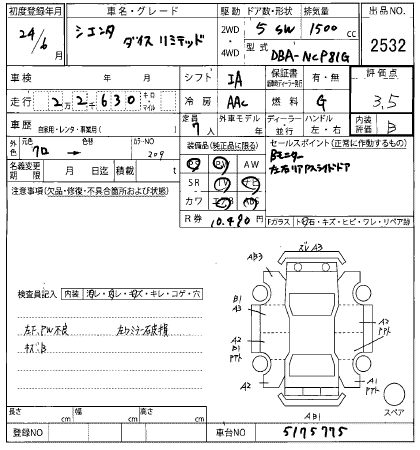 初度登録年月 車名・グレード 駆動 ドア数・形状 排気量 出品NO.
24/6 月 シエンタ ダイスリミテッド 2WD 4WD 5 SW 1500 cc 2532
型式 DBA-NCP81G
車検 年 月 シフト IA 保証書 有・無 評価点
走行 22630 キロ・マイル 冷房 AAC 燃料 G 3.5
車歴 自家用・レンタ・事業用( ) 定員 7人 外車モデル 年 ディーラー・並行 ハンドル 左・右 内装評価 B
外色 元色 クロ → 色替 カラーNO 209 装備品(純正品に限る) セールスポイント(正常に作動するもの)
名義変更期限 月 日迄 積載 t PS PW AW Bモニター
SR TV ナビ 左右リアPスライドドア
注意事項(欠品・修復・不具合箇所および状態) カワ エアB ABS
R券 10.490 Fガラス トビ石・キズ・ヒビ・ワレ・リペア跡
A3
AB3
検査員記入 内装 汚レ・スレ・キズ・キレ・コゲ・穴 B1
A3 A2
左F.PW不良 左Rミラー石皮損 A2
キズB B1
A2 A1
スペア
AB1
長さ cm 幅 cm 高さ cm
登録NO 車台NO 5175775